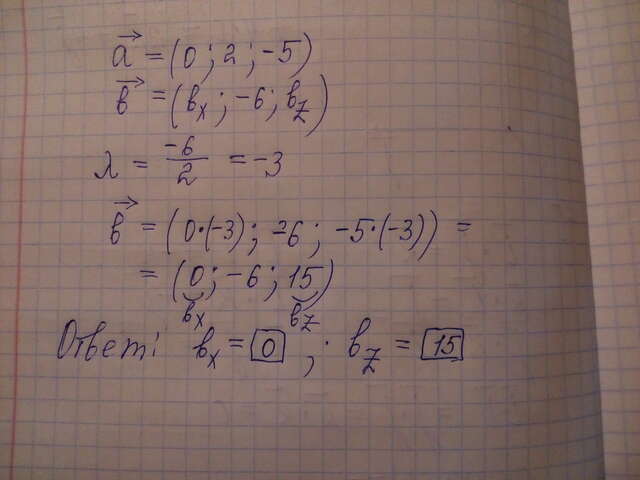 a⃗ = (0 ; 2 ; -5)
b⃗ = (bx ; -6 ; bz)
λ = -6/2 = -3
b⃗ = (0·(-3) ; -6 ; -5·(-3)) =
= (0 ; -6 ; 15)
bx bz
Ответ: bx = 0 ; bz = 15